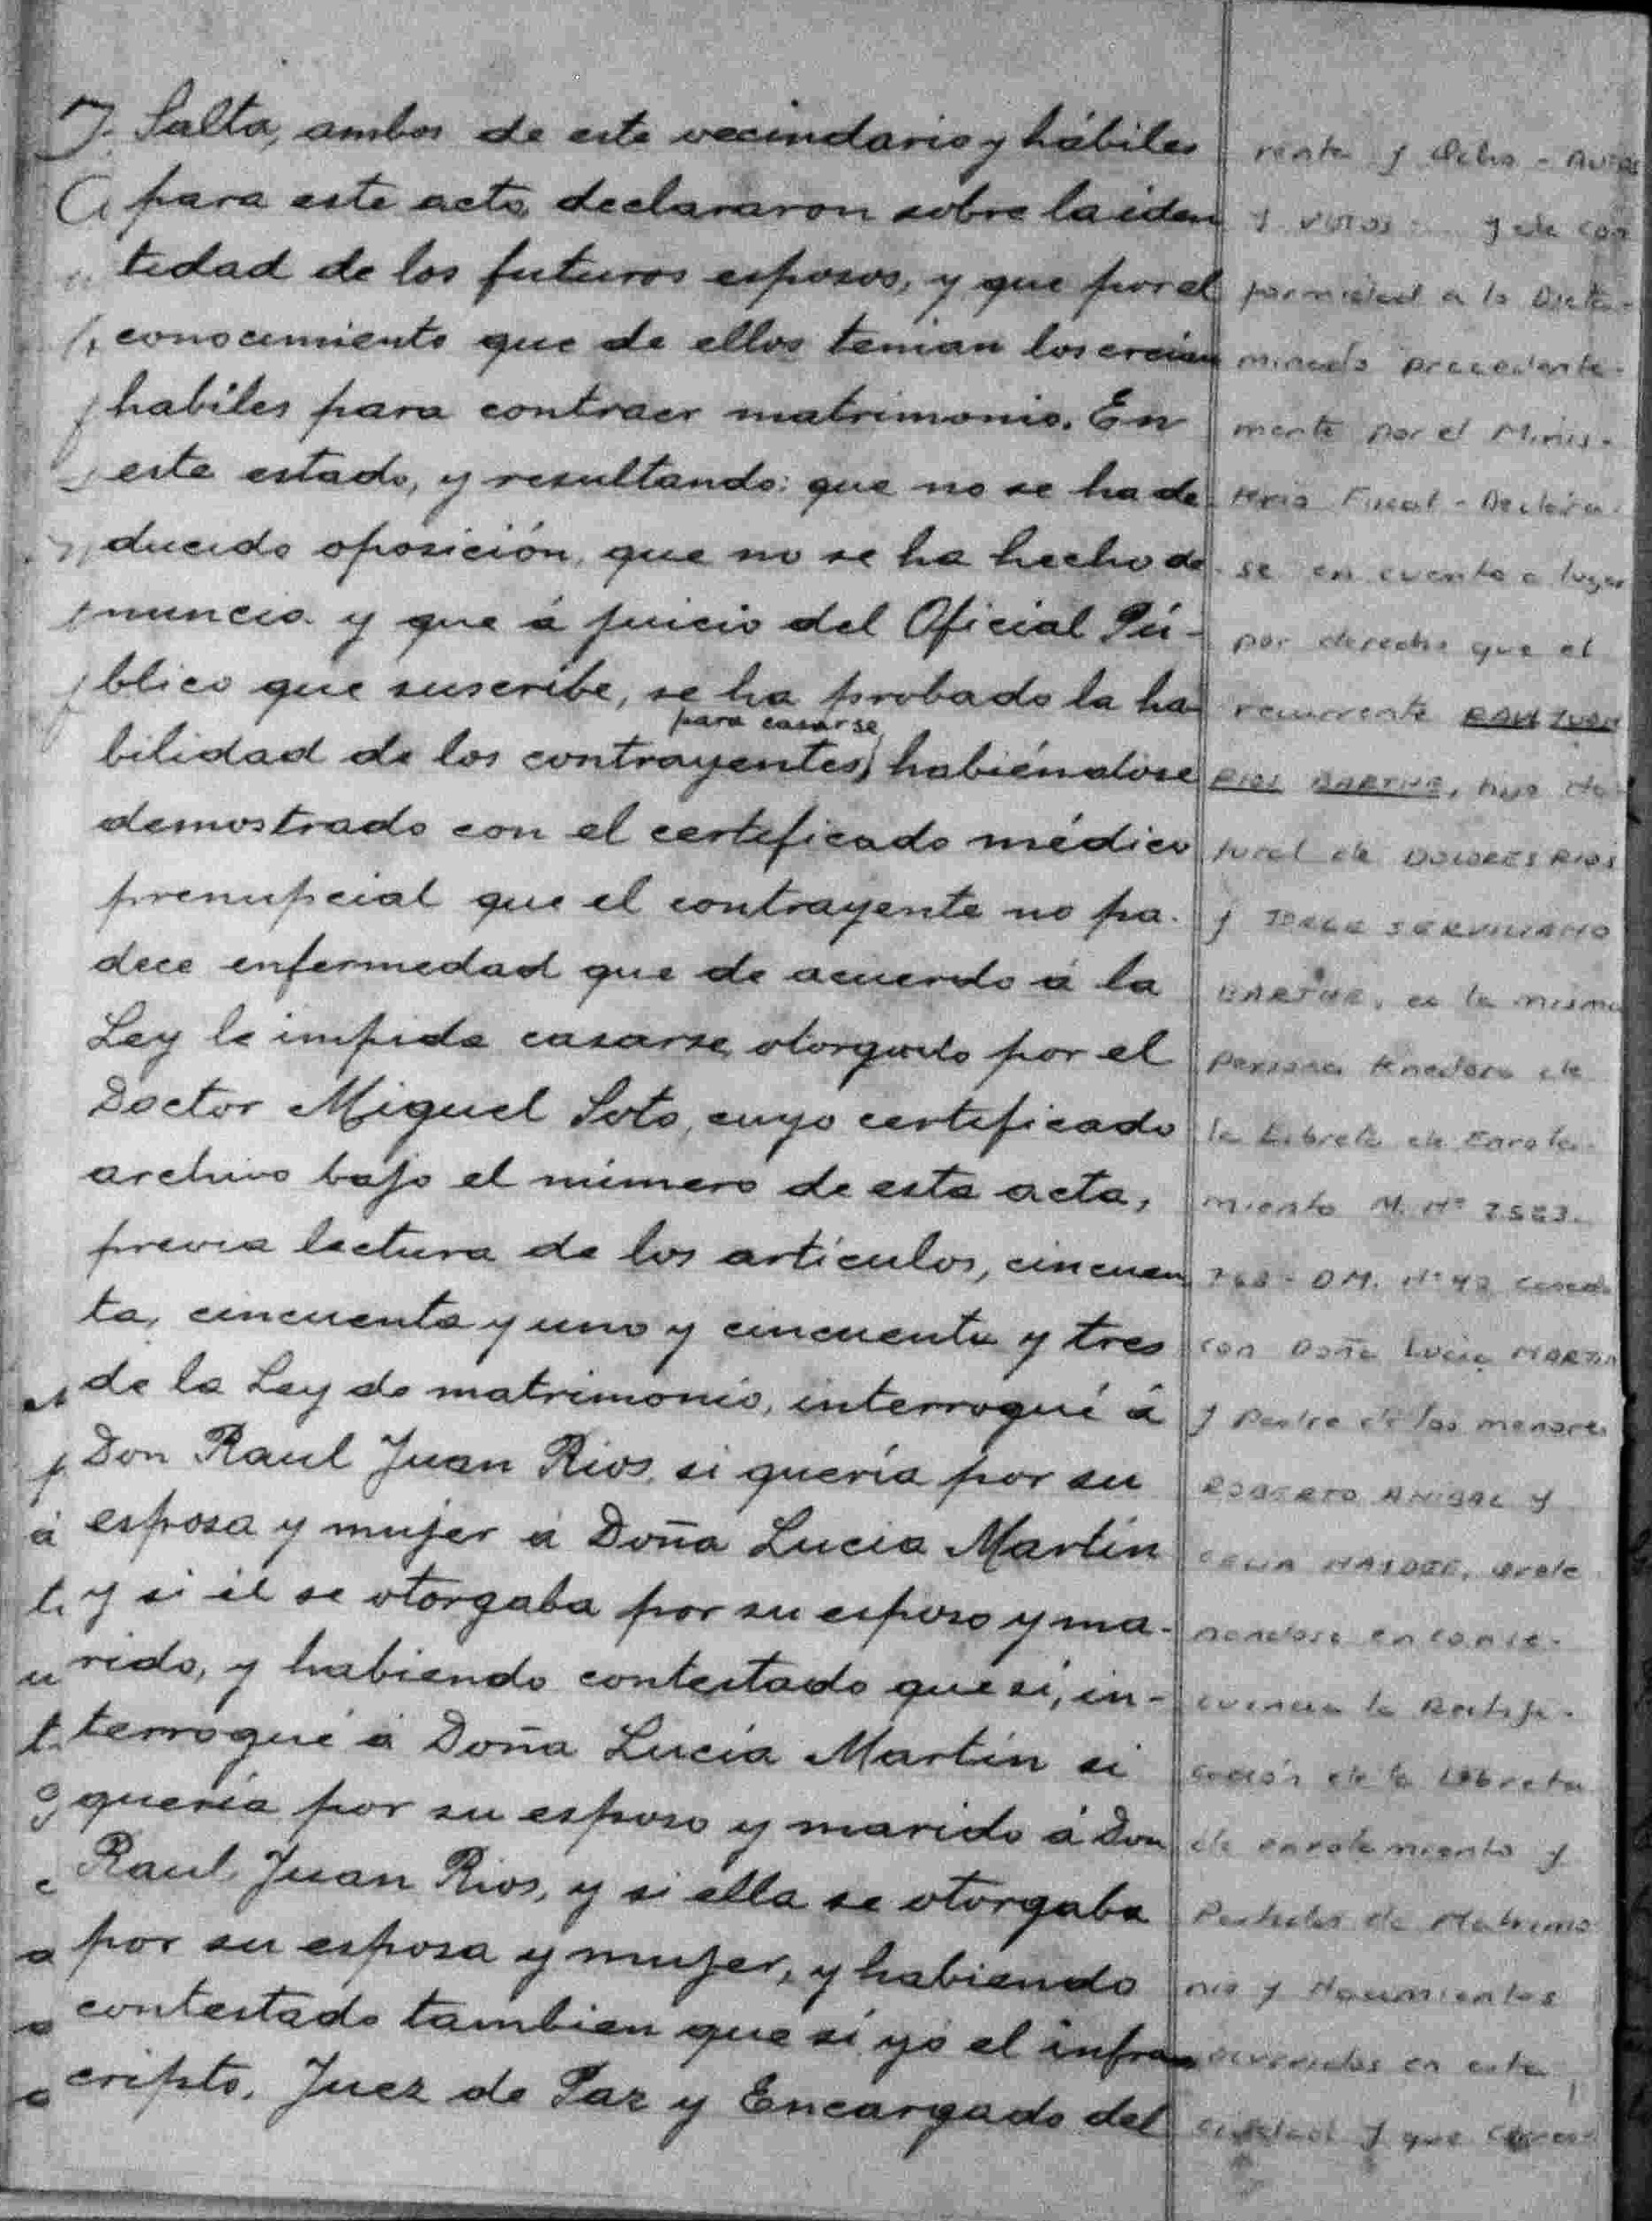 Salta, ambos de este vecindario y hábiles
para este acto declararon sobre la iden
tidad de los futuros esposos, y que por el
conocimiento que de ellos tenian los creian
habiles para contraer matrimonio. En
este estado, y resultando: que no se ha de-
ducido oposición, que no se ha hecho de-
nuncia y que á juicio del Oficial Pú-
blico que suscribe, se ha probado la ha-
para casarse
bilidad de los contrayentes, habiéndose
demostrado con el certificado médico
prenupcial que el contrayente no pa-
dece enfermedad que de acuerdo á la
Ley le impida casarse, otorgado por el
Doctor Miguel Soto, cuyo certificado
archivo bajo el número de esta acta,
previa lectura de los artículos, cincuen
ta, cincuenta y uno y cincuenta y tres
de la Ley de matrimonio, interrogué á
Don Raul Juan Rios, si quería por su
esposa y mujer á Doña Lucia Martín
y si él se otorgaba por su esposo y ma-
rido, y habiendo contestado que sí, in-
terrogué á Doña Lucía Martín si
quería por su esposo y marido á Don
Raul Juan Rios, y si ella se otorgaba
por su esposa y mujer, y habiendo
contestado tambien que sí, yo el infras
cripto, Juez de Paz y Encargado del
renta y Ocho - Autos
y vistos y de con
formidad a lo Dicta-
minado precedente-
mente por el Minis-
terio Fiscal - Declara-
se en cuanto a lugar
por derecho que el
recurrente RAUL JUAN
RIOS BARTHE, hijo na-
tural de DOLORES RIOS
y JORGE SERVILIANO
BARTHE, es la misma
persona tenedora de
la Libreta de Enrola-
miento M. Nº
D.M. Nº casado
con Doña Lucia MARTIN
y Padre de los menores
ROBERTO ANIBAL y
CELIA orde-
nandose en conse-
cuencia la Rectifi-
cación de la Libreta
de enrolamiento y
Partidas de Matrimo
nio y Nacimientos
ocurridos en esta
ciudad y que